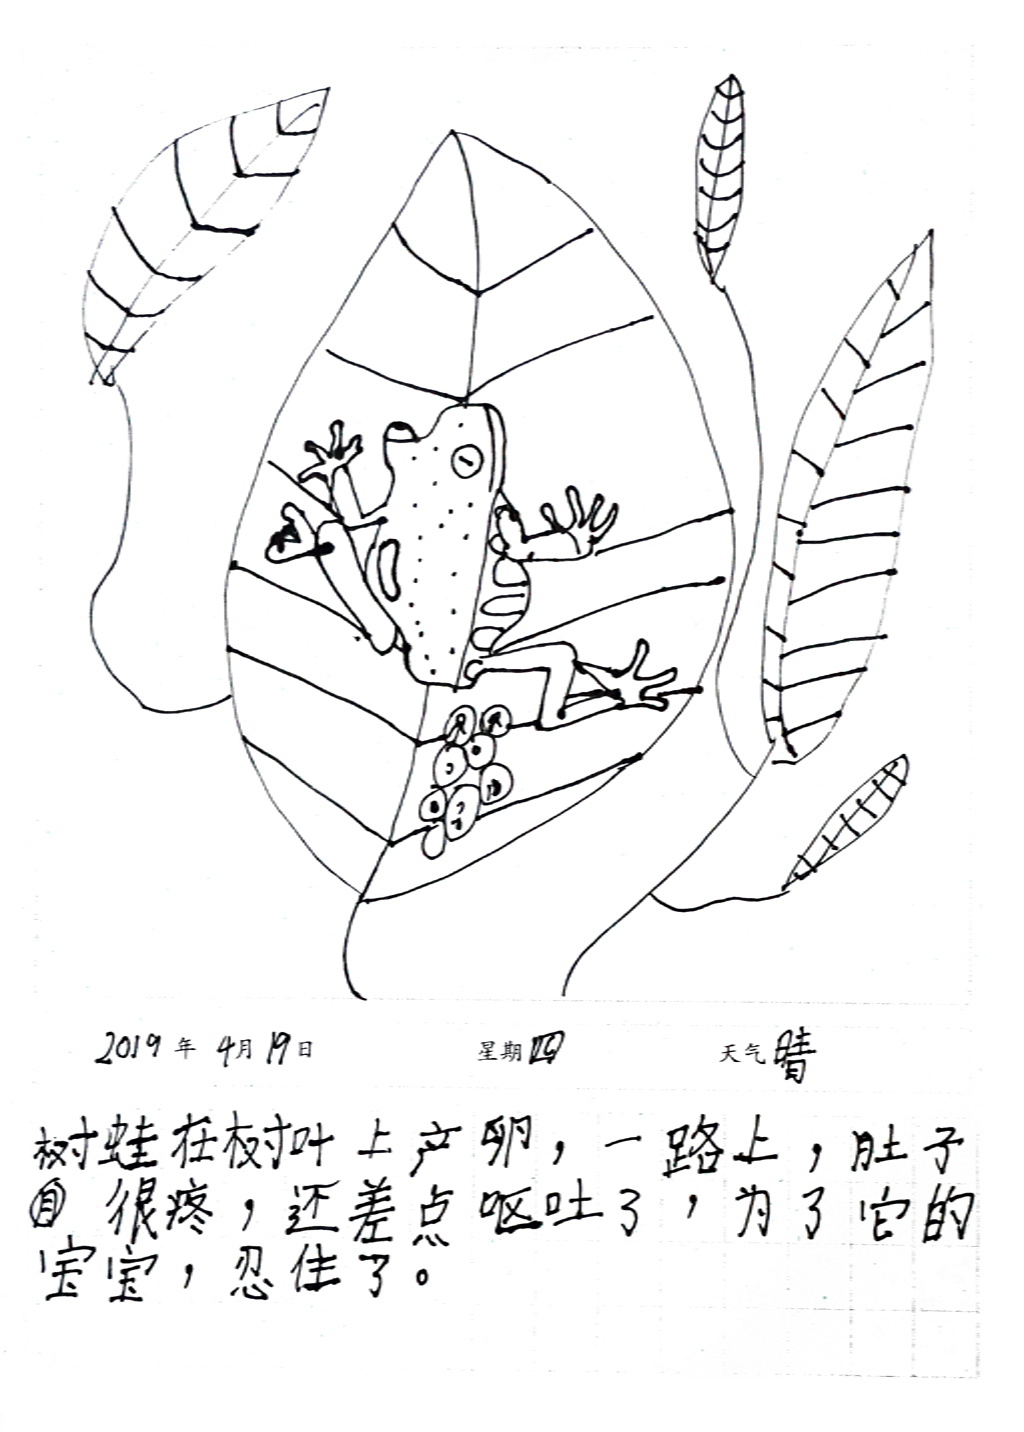 2019年4月19日 星期四 天气晴
树蛙在树叶上产卵，一路上，肚子
很疼，还差点呕吐了，为了它的
宝宝，忍住了。